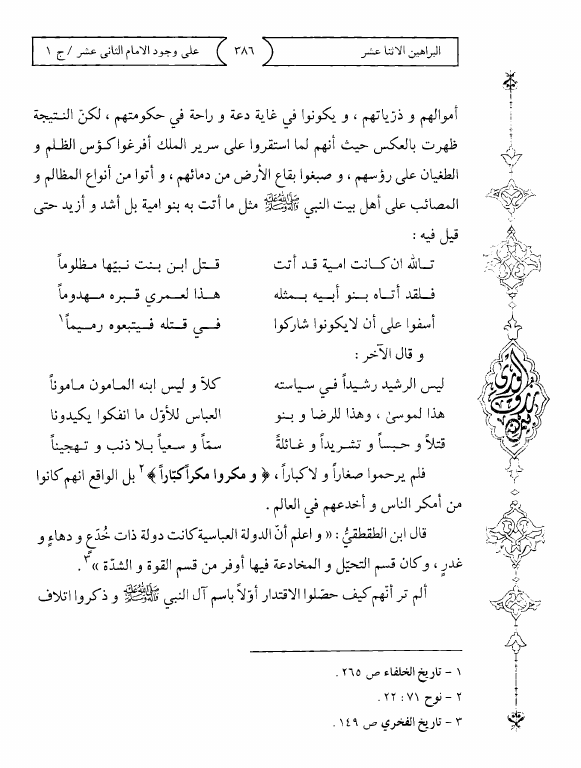 البراهين الاثنا عشر
٣٨٦
على وجود الامام الثانى عشر / ج ١
أموالهم و ذرّياتهم ، و يكونوا في غاية دعة و راحة في حكومتهم ، لكنّ النتيجة
ظهرت بالعكس حيث أنهم لما استقروا على سرير الملك أفرغوا كؤوس الظلم و
الطغيان على رؤسهم ، و صبغوا بقاع الأرض من دمائهم ، و أتوا من أنواع المظالم و
المصائب على أهل بيت النبي ﷺ مثل ما أتت به بنو امية بل أشد و أزيد حتى
قيل فيه :
تـالله ان كـانت امية قد أتت قـتل ابـن بـنت نبيّها مـظلوماً
فـلقد أتـاه بـنو أبـيه بـمثله هـذا لعـمري قـبره مـهدوماً
أسفوا على أن لايكونوا شاركوا فـي قـتله فـيتبعوه رمـيماً١
و قال الآخر :
ليس الرشيد رشيداً في سـياسته كلاّ و ليس ابنه المـامون مأموناً
هذا لموسىٰ ، وهذا للرضا و بنو العباس للأوّل ما انفكوا يكيدونا
قتلاً و حبساً و تشريداً و غـائلةً سمّاً و سعياً بـلا ذنب و تـهجيناً
فلم يرحموا صغاراً و لاكباراً ، ﴿ و مكروا مكراً كبّاراً ﴾٢ بل الواقع انهم كانوا
من أمكر الناس و أخدعهم في العالم .
قال ابن الطقطقيُّ : « و اعلم أنّ الدولة العباسية كانت دولة ذات خُدَعٍ و دهاءٍ و
غدرٍ ، وكان قسم التحيّل و المخادعة فيها أوفر من قسم القوة و الشدّة »٣ .
ألم تر أنّهم كيف حصّلوا الاقتدار أوّلاً باسم آل النبي ﷺ و ذكروا اتلاف
١ - تاريخ الخلفاء ص ٢٦٥ .
٢ - نوح ٧١ : ٢٢ .
٣ - تاريخ الفخري ص ١٤٩ .